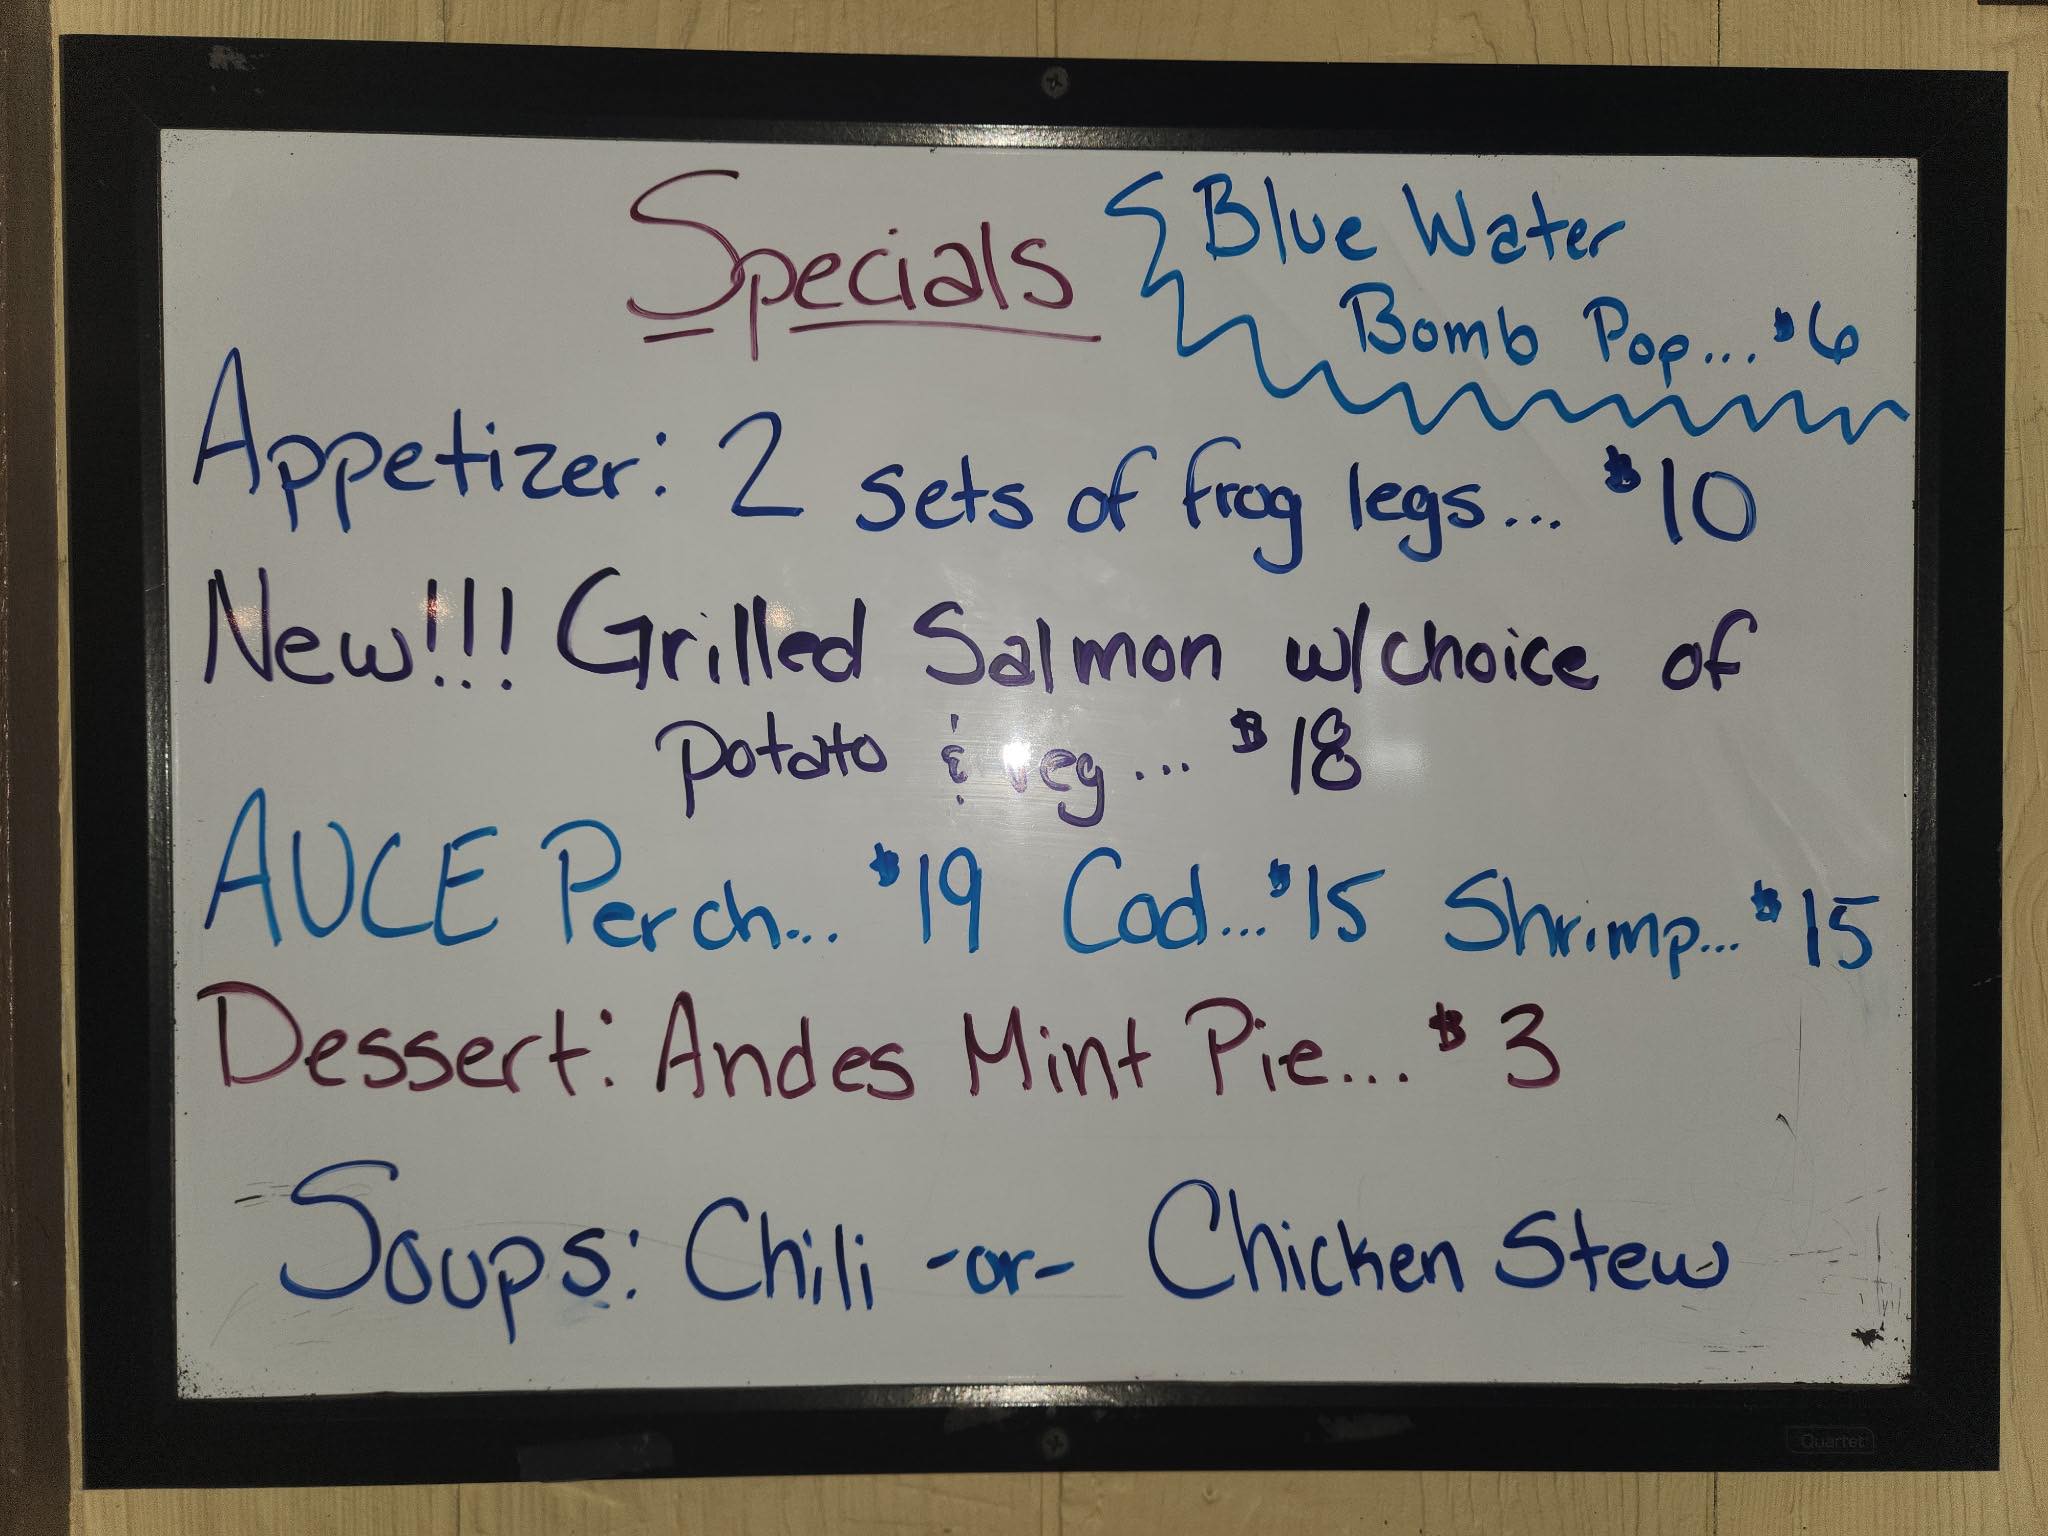 Specials
Blue Water
Bomb Pop... $6
Appetizer: 2 sets of frog legs... $10
New!!! Grilled Salmon w/choice of
potato & veg... $18
AUCE Perch... $19 Cod... $15 Shrimp... $15
Dessert: Andes Mint Pie... $3
Soups: Chili -or- Chicken Stew
Quartet